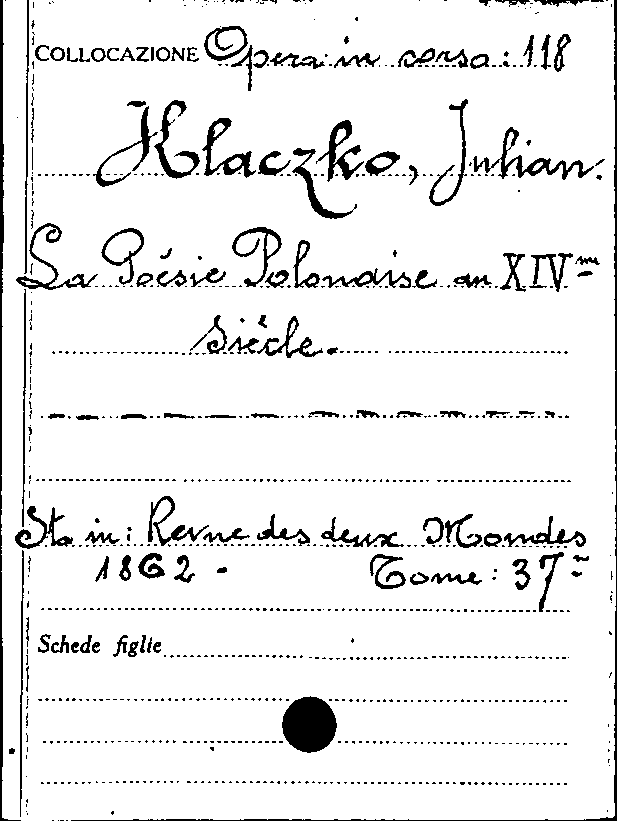 COLLOCAZIONE Opera in corso: 118
Klaczko, Julian.
La Poésie Polonaise au XIVme
Siècle.
Sta in: Revue des deux Mondes
1862 - Tome: 37m
Schede figlie